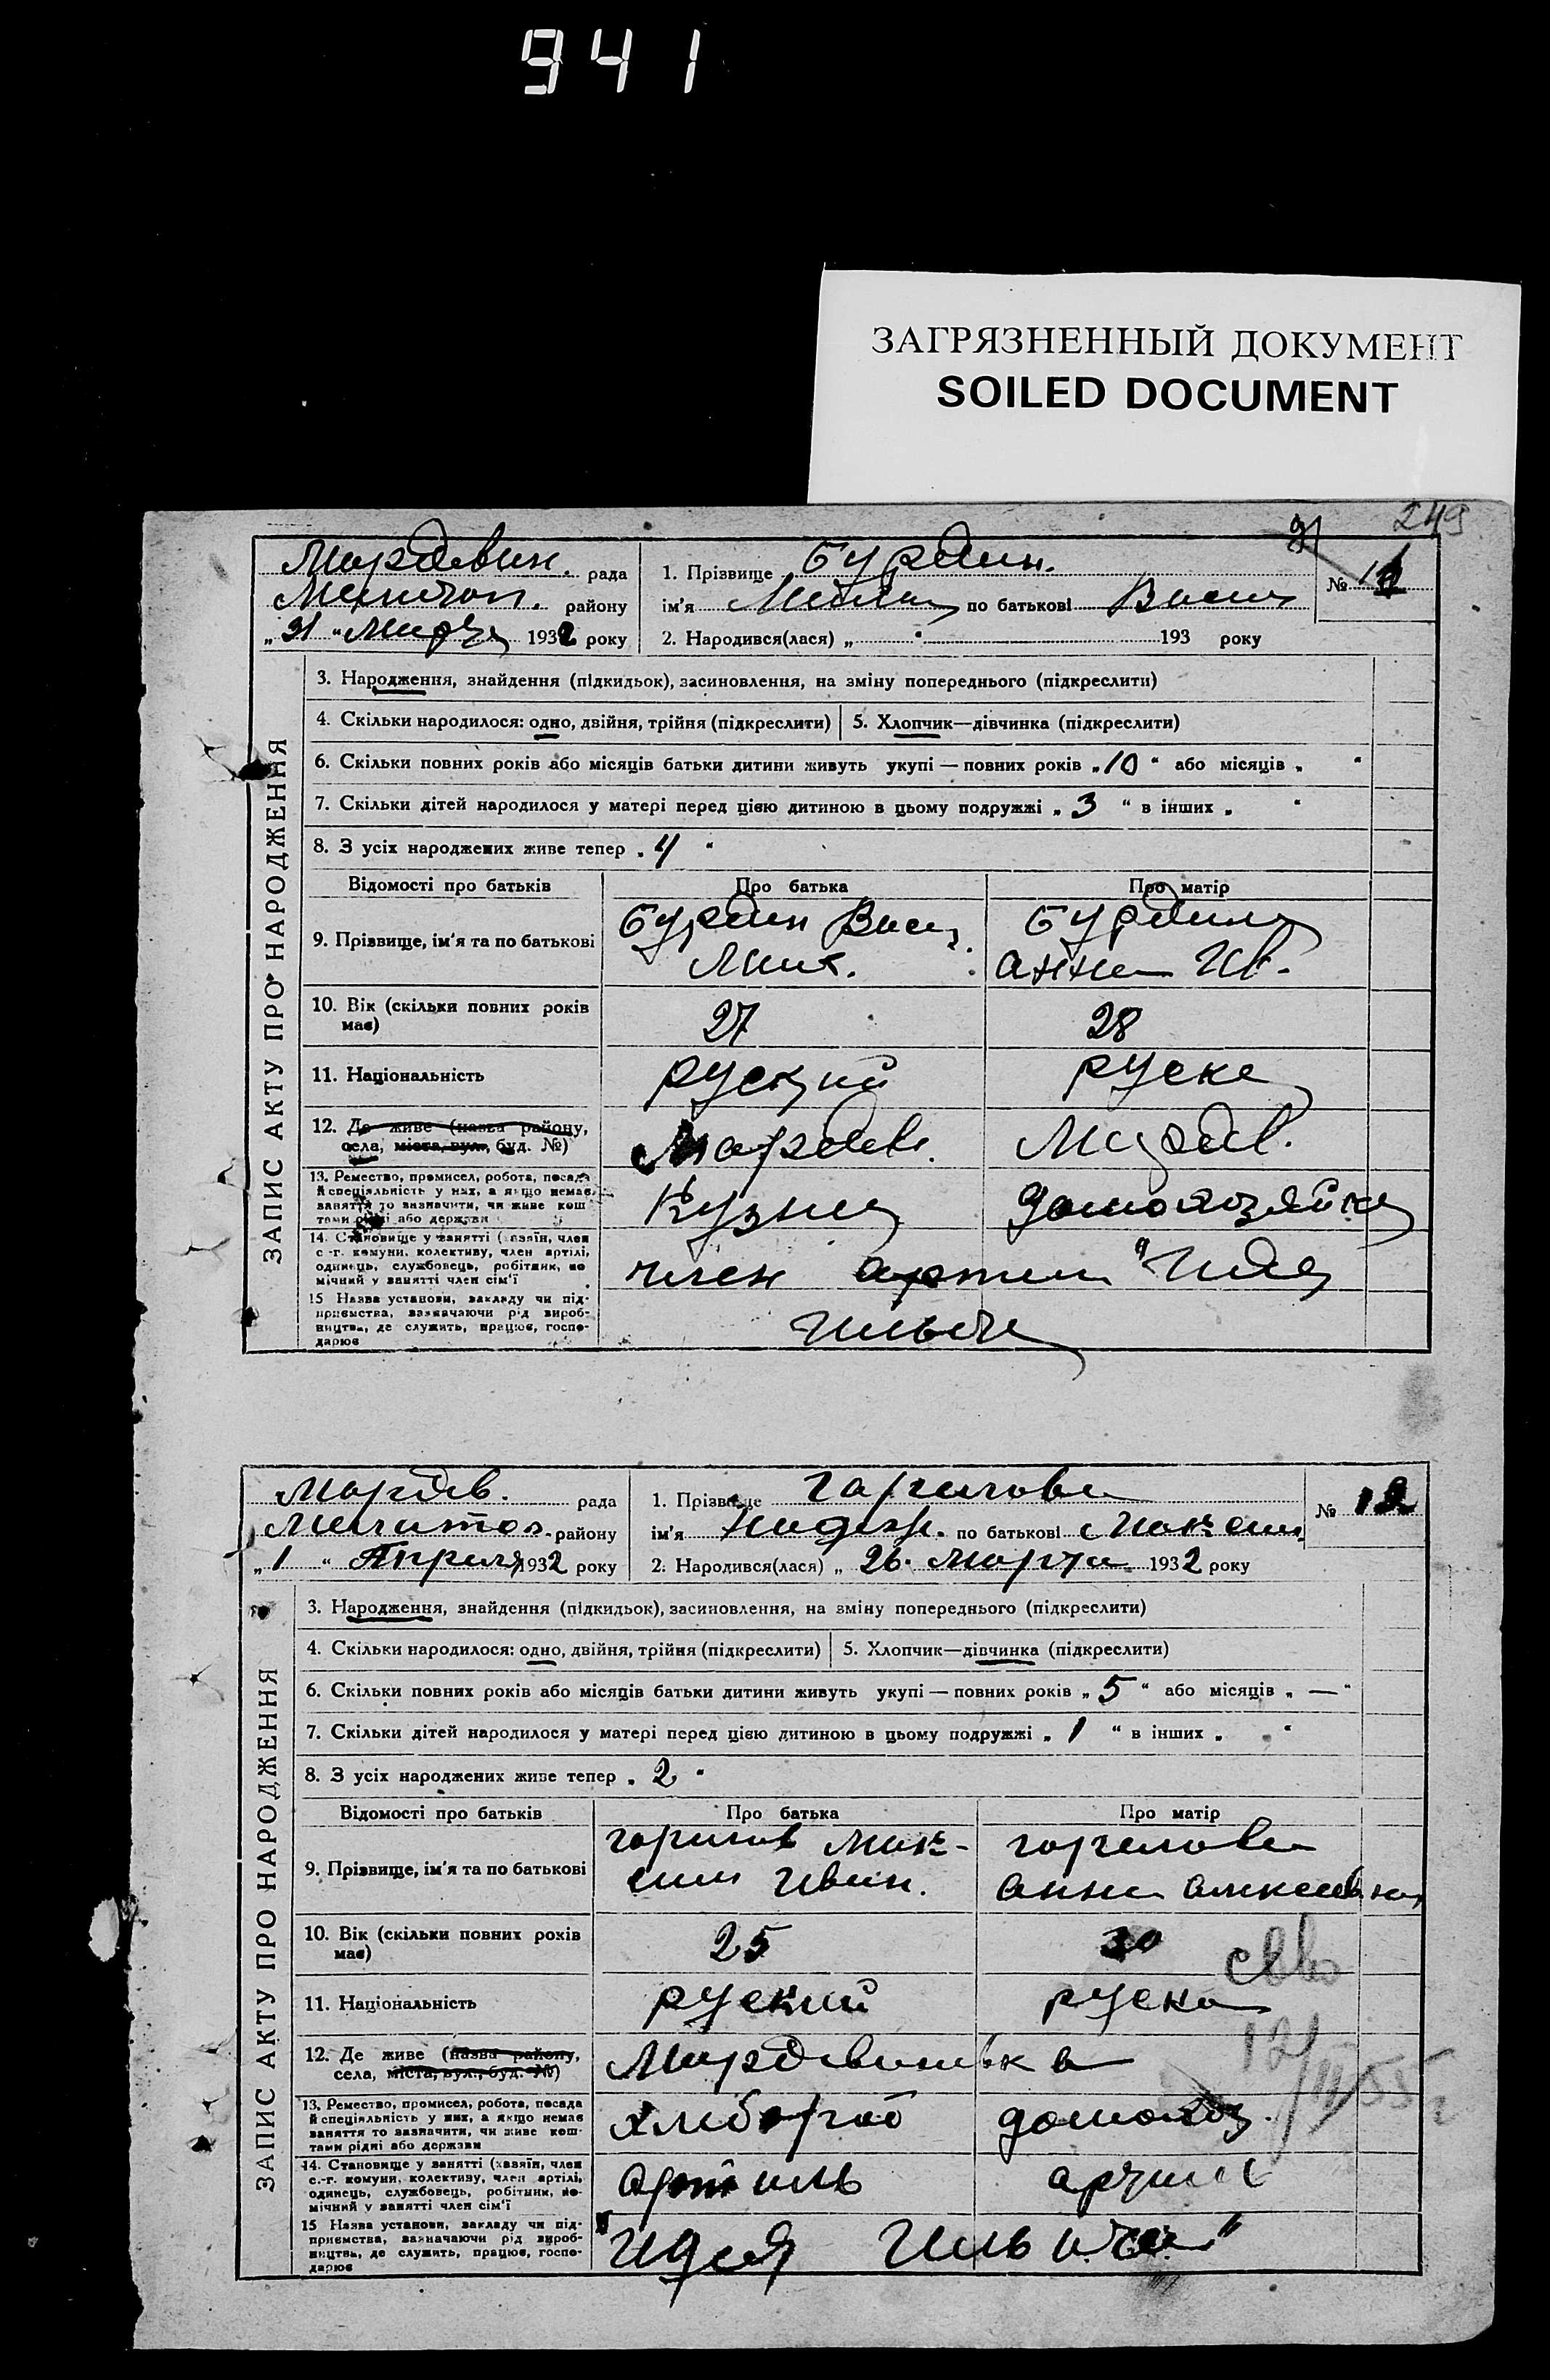 941
ЗАГРЯЗНЕННЫЙ ДОКУМЕНТ
SOILED DOCUMENT
249
Мордвин. рада
Мелитоп. району
„31" Марта 1932 року
1. Прізвище Бурдин.
ім'я по батькові Васил
2. Народився(лася) „ " 193 року
№ 11
ЗАПИС АКТУ ПРО НАРОДЖЕННЯ
3. Народження, знайдення (підкидьок), засиновлення, на зміну попереднього (підкреслити)
4. Скільки народилося: одно, двійня, трійня (підкреслити) 5. Хлопчик—дівчинка (підкреслити)
6. Скільки повних років або місяців батьки дитини живуть укупі — повних років „10" або місяців „ "
7. Скільки дітей народилося у матері перед цією дитиною в цьому подружжі „3" в інших „ "
8. З усіх народжених живе тепер „4"
Відомості про батьків Про батька Про матір
9. Прізвище, ім'я та по батькові
Бурдин Васи
Мих.
Бурдина
Анна Ив.
10. Вік (скільки повних років має) 27 28
11. Національність руский руска
12. Де живе (назва району, села, міста, вул., буд. №) Мордв.
13. Ремество, промисел, робота, посада й спеціяльність у них, а якщо немає заняття то зазначити, чи живе коштами рідні або держави
Кузнец домохозяйка
14. Становище у занятті (хазяїн, член с.-г. комуни, колективу, член артілі, одинець, службовець, робітник, помічний у занятті член сім'ї
член артили "Идея
15 Назва установи, закладу чи підприємства, зазначаючи рід виробництва, де служить, працює, господарює
Ильича
Мордв. рада
Мелитоп. району
„1" Апреля 1932 року
1. Прізвище Горилова
ім'я Надежд. по батькові Максим
2. Народився(лася) „26. Марта 1932 року
№ 12
ЗАПИС АКТУ ПРО НАРОДЖЕННЯ
3. Народження, знайдення (підкидьок), засиновлення, на зміну попереднього (підкреслити)
4. Скільки народилося: одно, двійня, трійня (підкреслити) 5. Хлопчик—дівчинка (підкреслити)
6. Скільки повних років або місяців батьки дитини живуть укупі — повних років „5" або місяців „—"
7. Скільки дітей народилося у матері перед цією дитиною в цьому подружжі „1" в інших „ "
8. З усіх народжених живе тепер „2"
Відомості про батьків Про батька Про матір
9. Прізвище, ім'я та по батькові
Горилов Мак-
сим Иван.
Горилова
Анна Алексеевна
10. Вік (скільки повних років має) 25 30
11. Національність руский руска
12. Де живе (назва району, села, міста, вул., буд. №) Мордвиновка
13. Ремество, промисел, робота, посада й спеціяльність у них, а якщо немає заняття то зазначити, чи живе коштами рідні або держави
хлибороб домохоз.
14. Становище у занятті (хазяїн, член с.-г. комуни, колективу, член артілі, одинець, службовець, робітник, помічний у занятті член сім'ї
артиль
15 Назва установи, закладу чи підприємства, зазначаючи рід виробництва, де служить, працює, господарює
"Идея Ильича"